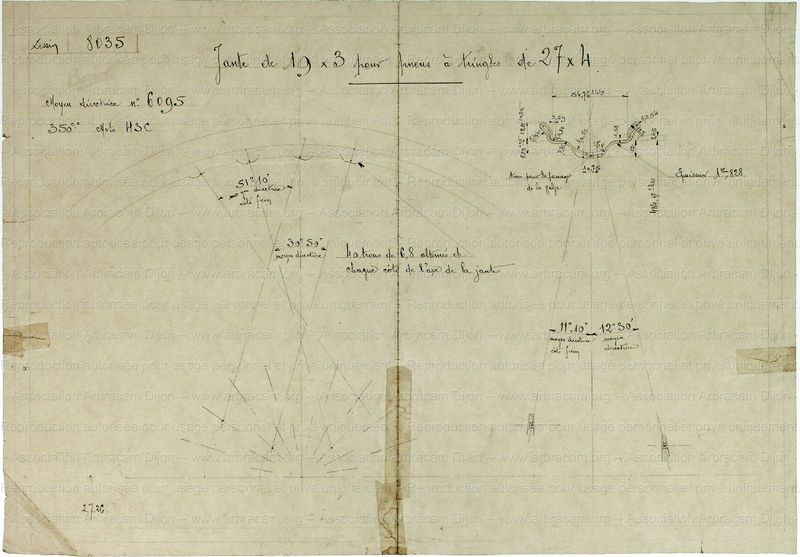 Dessin 8035
Jante de 19 x 3 pour pneus à tringles de 27 x 4
Moyeu directrice n° 6095
350 cc Moto HSC
51° 10'
moyeu directrice
côté frein
30° 50'
moyeu directrice
40 trous de 6,8 alternés de
chaque côté de l'axe de la jante
Trou pour le passage
de la valve
Epaisseur 1m/m,828
11° 10' 12° 30'
moyeu directrice moyeu
côté frein directrice
2.7.26
Reproduction autorisée pour usage personnel et privé uniquement
Association Arbracam Dijon – www.arbracam.org